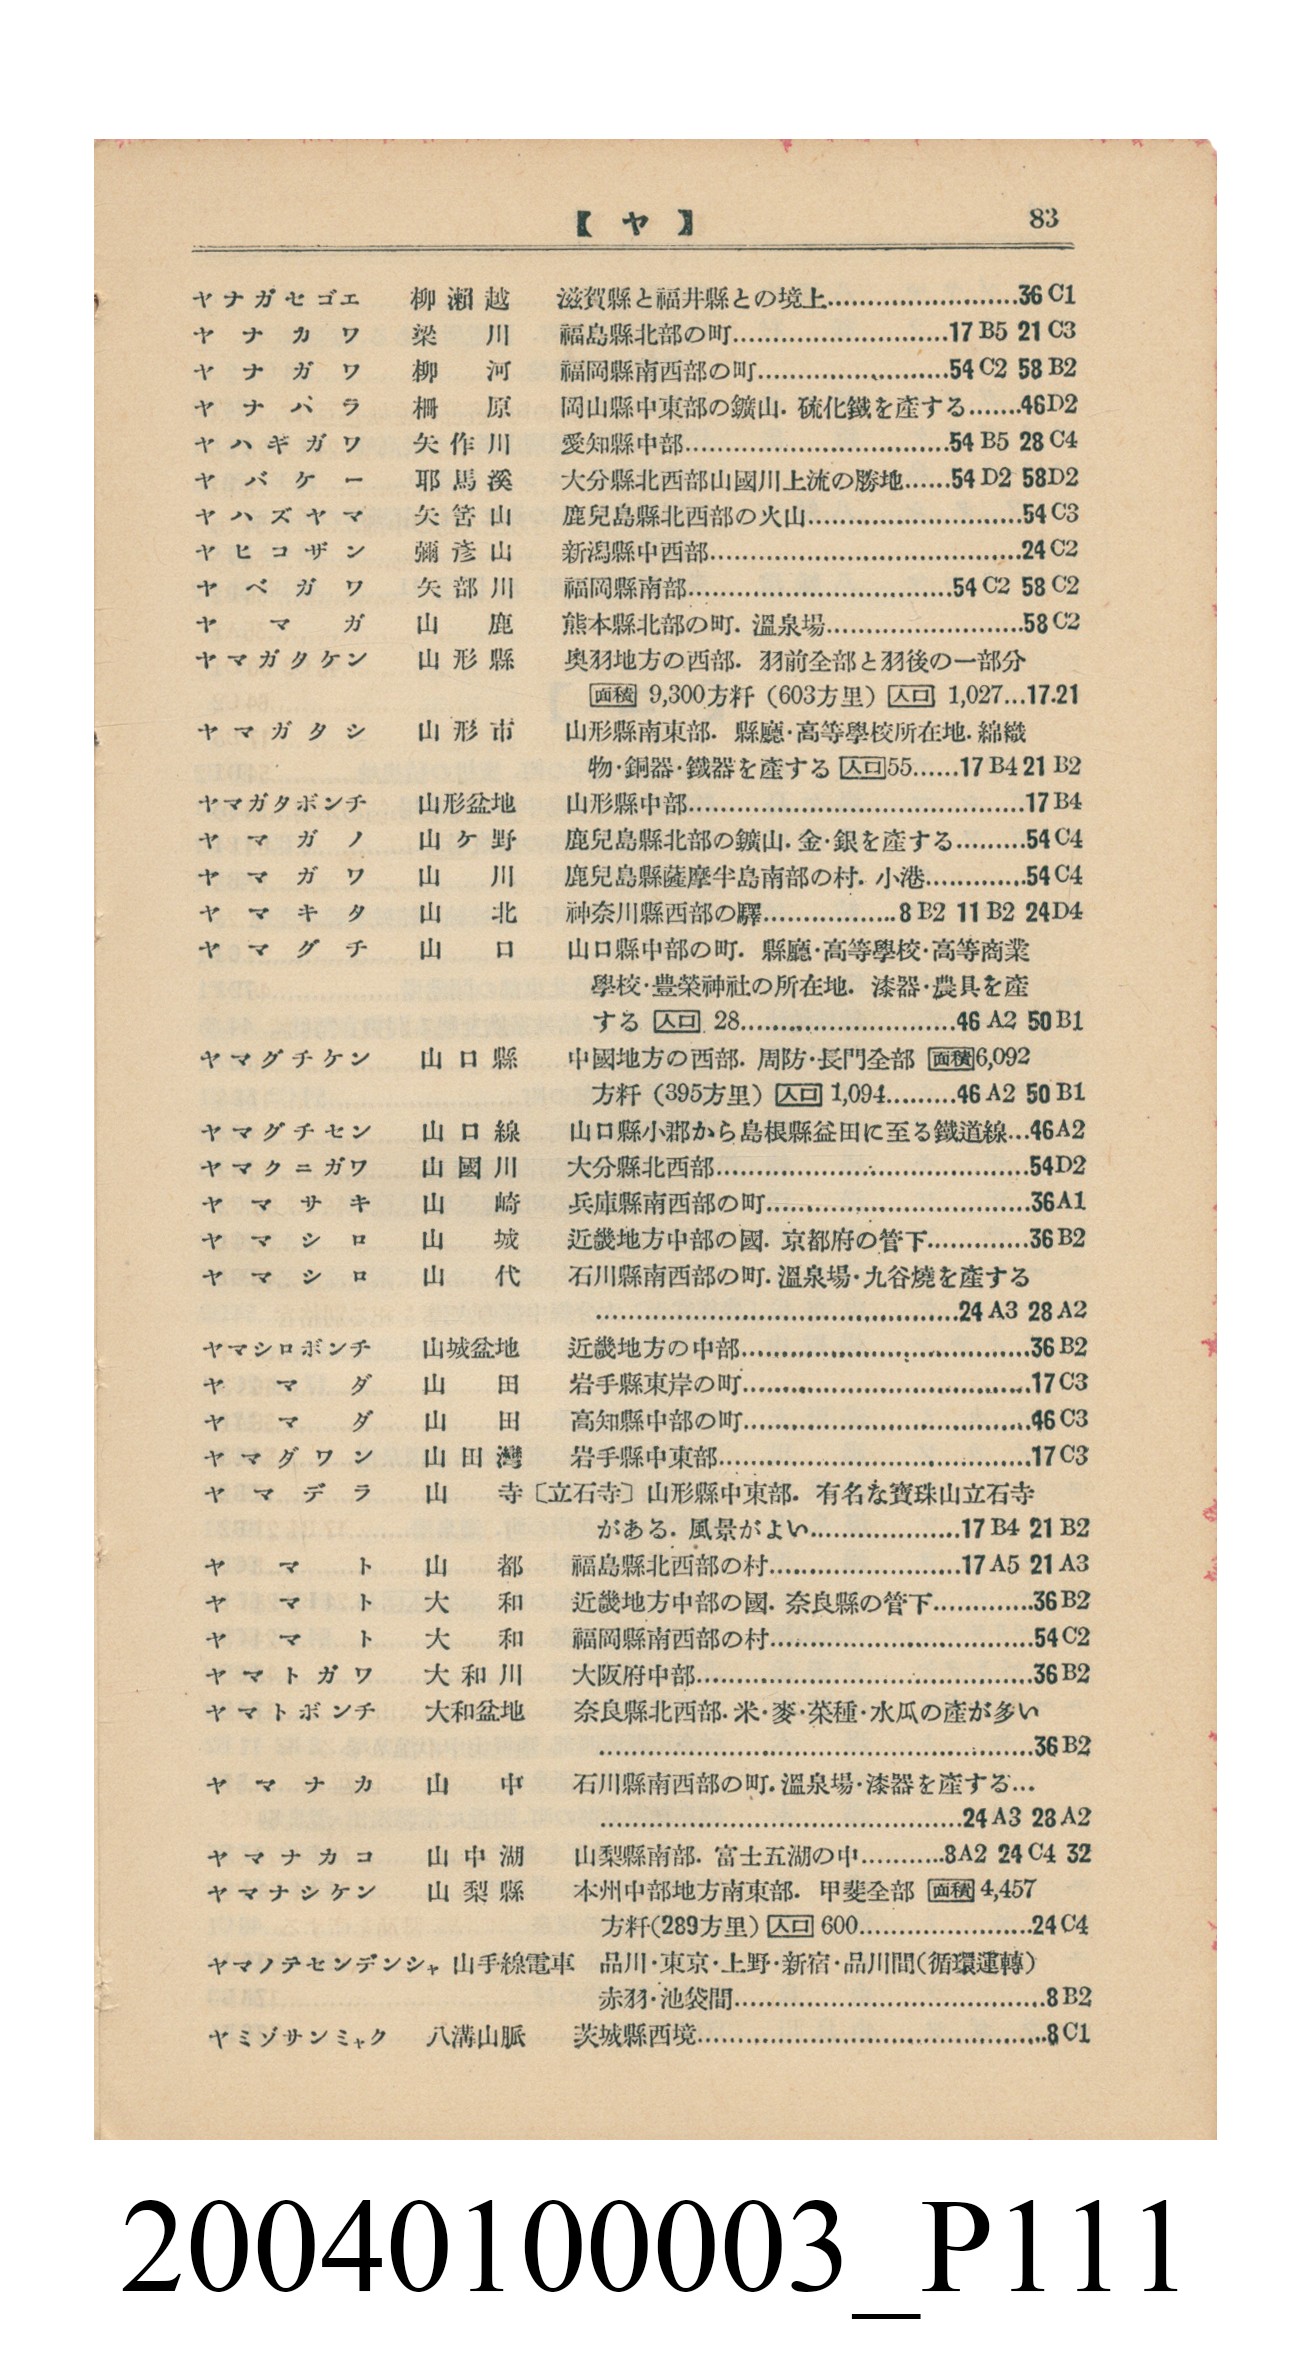 【ヤ】 83
ヤナガセゴエ 柳瀨越 滋賀縣と福井縣との境上........................36 C1
ヤナカワ 梁川 福島縣北部の町...........................17 B5 21 C3
ヤナガワ 柳河 福岡縣南西部の町........................54 C2 58 B2
ヤナハラ 柵原 岡山縣中東部の鑛山. 硫化鐵を產する.......46D2
ヤハギガワ 矢作川 愛知縣中部.................................54 B5 28 C4
ヤバケー 耶馬溪 大分縣北西部山國川上流の勝地......54 D2 58D2
ヤハズヤマ 矢筈山 鹿兒島縣北西部の火山...........................54 C3
ヤヒコザン 彌彥山 新潟縣中西部.......................................24 C2
ヤベガワ 矢部川 福岡縣南部.................................54 C2 58 C2
ヤマガ 山鹿 熊本縣北部の町. 溫泉場.........................58 C2
ヤマガタケン 山形縣 奧羽地方の西部. 羽前全部と羽後の一部分
面積 9,300方粁 (603方里) 人口 1,027...17.21
ヤマガタシ 山形市 山形縣南東部. 縣廳·高等學校所在地. 綿織
物·銅器·鐵器を產する 人口55......17 B4 21 B2
ヤマガタボンチ 山形盆地 山形縣中部..........................................17 B4
ヤマガノ 山ケ野 鹿兒島縣北部の鑛山. 金·銀を產する.........54 C4
ヤマガワ 山川 鹿兒島縣薩摩半島南部の村. 小港.............54 C4
ヤマキタ 山北 神奈川縣西部の驛.................8 B2 11 B2 24D4
ヤマグチ 山口 山口縣中部の町. 縣廳·高等學校·高等商業
學校·豊榮神社の所在地. 漆器·農具を產
する 人口 28...........................46 A2 50 B1
ヤマグチケン 山口縣 中國地方の西部. 周防·長門全部 面積6,092
方粁 (395方里) 人口 1,094.........46 A2 50 B1
ヤマグチセン 山口線 山口縣小郡から島根縣益田に至る鐵道線...46A2
ヤマクニガワ 山國川 大分縣北西部.......................................54D2
ヤマサキ 山崎 兵庫縣南西部の町.................................36A1
ヤマシロ 山城 近畿地方中部の國. 京都府の管下.............36 B2
ヤマシロ 山代 石川縣南西部の町. 溫泉場·九谷燒を產する
..............................................24 A3 28 A2
ヤマシロボンチ 山城盆地 近畿地方の中部....................................36 B2
ヤマダ 山田 岩手縣東岸の町....................................17 C3
ヤマダ 山田 高知縣中部の町....................................46 C3
ヤマダワン 山田灣 岩手縣中東部.......................................17 C3
ヤマデラ 山寺〔立石寺〕 山形縣中東部. 有名な寶珠山立石寺
がある. 風景がよい...................17 B4 21 B2
ヤマト 山都 福島縣北西部の村........................17 A5 21 A3
ヤマト 大和 近畿地方中部の國. 奈良縣の管下.............36 B2
ヤマト 大和 福岡縣南西部の村.................................54 C2
ヤマトガワ 大和川 大阪府中部..........................................36 B2
ヤマトボンチ 大和盆地 奈良縣北西部. 米·麥·菜種·水瓜の產が多い
.......................................................36 B2
ヤマナカ 山中 石川縣南西部の町. 溫泉場·漆器を產する...
..............................................24 A3 28 A2
ヤマナカコ 山中湖 山梨縣南部. 富士五湖の中...........8A2 24 C4 32
ヤマナシケン 山梨縣 本州中部地方南東部. 甲斐全部 面積 4,457
方粁(289方里) 人口 600......................24 C4
ヤマノテセンデンシャ 山手線電車 品川·東京·上野·新宿·品川間(循環運轉)
赤羽·池袋間.......................................8 B2
ヤミゾサンミャク 八溝山脈 茨城縣西境............................................8 C1
20040100003_P111